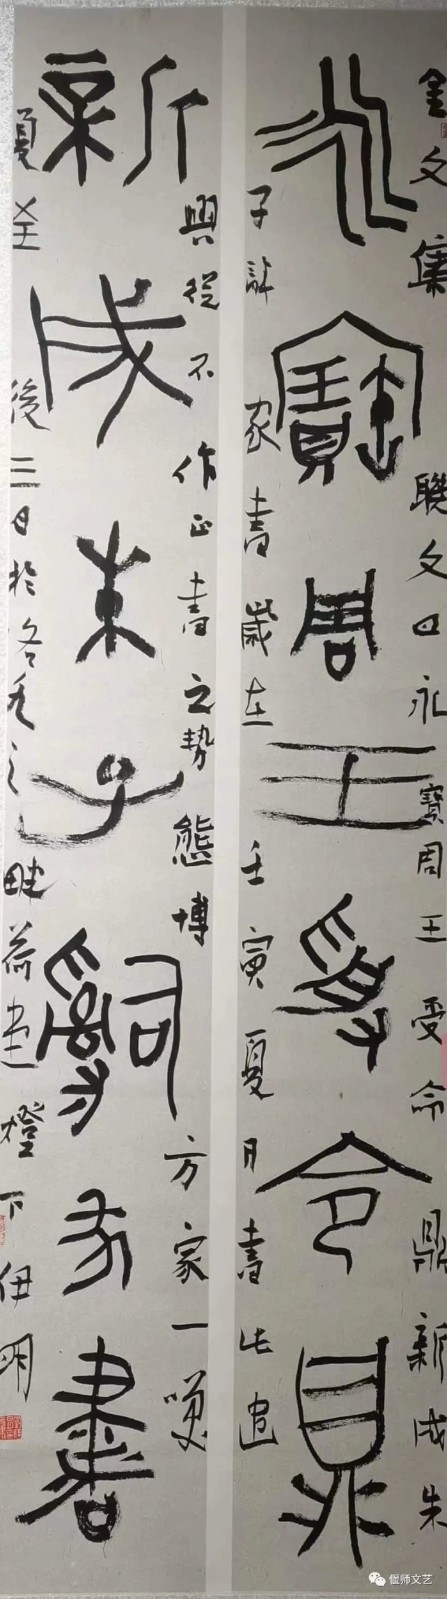 金文集聯文曰永寶周王受命鼎新成朱
永寶周王受命鼎
子家書歲在壬寅夏日書此遣
興從不作正書之勢態博方家一噗
新成朱子家書
夏至後二日於洛之畔荷堂燈下伊明
偃师文艺